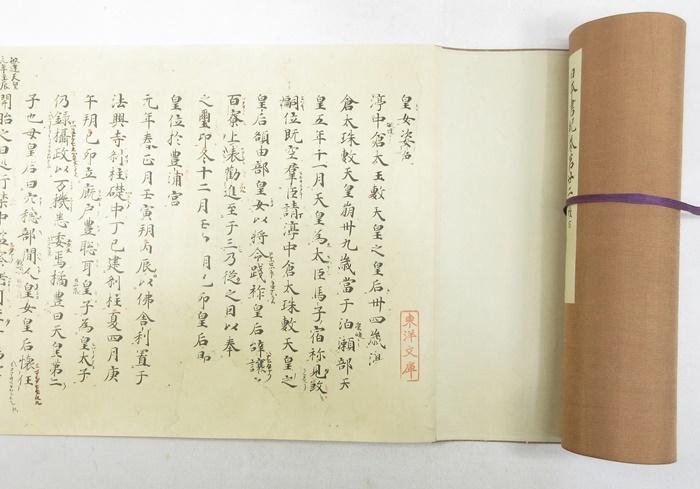 日本書紀卷第廿二
東洋文庫
皇女姿色
渟中倉太玉敷天皇之皇后卅四歲渟
倉太珠敷天皇崩卅九歲當于泊瀬部天
皇五年十一月天皇為大臣馬子宿祢見敓
嗣位既空羣臣請渟中倉太珠敷天皇之
皇后額田部皇女以將令踐祚皇后辭讓
百寮上表勸進至于三乃從之因以奉
之璽印冬十二月壬 月己卯皇后即
皇位於豊浦宮
元年春正月壬寅朔丙辰以佛舍利置于
法興寺刹柱礎中丁巳建刹柱夏四月庚
午朔己卯立廐戶豊聰耳皇子為皇太子
仍録攝政以万機悉委焉橘豊日天皇第二
子也母皇后曰穴穗部間人皇女皇后懷
開胎之日巡行禁中監察諸司